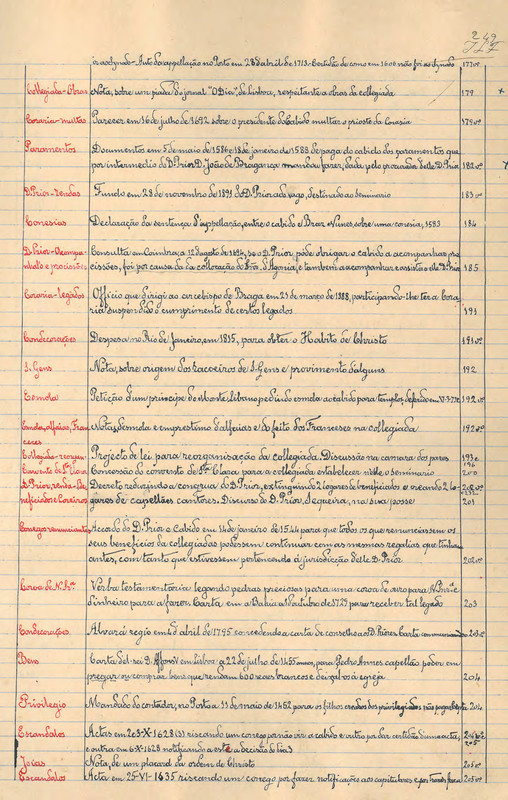 249
vº ardendo - Auto da appellação no Porto em 28 de abril de 1713. Certidão de como em 1606 não foi ardendo 177vº
Collegiada - Obras Nota, sobre um piada do jornal "O Dia", de Lisboa, respeitante a obras da collegiada 179 +
Coraria - multas Parecer em 16 de julho de 1692 sobre o presidente do Cabido multar o prioste da Conesia 179vº
Paramentos Documentos em 5 de maio de 1586 e 18 de janeiro de 1588 de paga do cabido dos paramentos que
por intermedio de D. Prior D. João de Bragança mandou fazer, dada pelo procurador delle D. Prior 182vº
D. Prior - rendas Fundo em 28 de novembro de 1891 do D. Priorado vago, destinado ao seminario 183vº
Conesias Declaração da sentença d'appellação, entre o cabido e Braz Nunes, sobre uma conesia, 1583 184
D. Prior - Acompa Consulta em Coimbra, a 12 agosto de 1694, se o D. Prior póde obrigar o cabido a acompanhar pro
nhalo e procissões cissões, foi por causa da collocação do Sr. d'Agonia, e tambem a acompanhar e assistir a elle D. Prior 185
Coraria - legados Officio que dirigi ao arcebispo de Braga em 21 de março de 1888, participando-lhe ter a Cora
ria suspendido o cumprimento de certos legados 191
Condecorações Despesa no Rio de Janeiro, em 1815, para obter o Habito de Christo 191vº
S. Gens Nota, sobre origem dos bacoeiros de S. Gens e provimento d'alguns 192
Esmola Petição d'um principe do Monte Libano pedindo esmola ao cabido para templos, deferido em 192vº
Esmola, alfaias, Fran Nota, d'esmola e emprestimo d'alfaias e feito dos Franceses na collegiada 192vº
ceses
Collegiada - reorgan. Projecto de lei para reorganisação da collegiada. Discussão na camara dos pares 193 e 196
Convento de Sta Clara Concessão do convento de Sta Clara para a collegiada estabelecer nelle o seminario 200
D. Prior, renda - Be Decreto reduzindo a congrua do D. Prior, extinguindo 2 logares de beneficiados e creando 2 lo-
neficiados e Coreiros gares de capellães cantores. Discurso do D. Prior, Sequeira, na sua posse 201
Conegos renunciantes Acordo do D. Prior e Cabido em 14 de janeiro de 1524 para que todos os que renunciessem os
seus beneficios da collegiada podessem continuar com as mesmas regalias que tinham
antes, com tanto que estivessem pertencendo á jurisdicção delle D. Prior 202vº
Coroa de N. Srª Verba testamentoria legando pedras preciosas para uma coroa de ouro para N. Srª e
dinheiro para a fazer. Carta em a Bahia a outubro de 1729 para receber tal legado 203
Condecorações Alvará regio em d'abril de 1795 concedendo a carta de conselho ao D. Prior e Carta 203vº
Bens Carta del-rei D. Affonso V em Lisboa a 22 de julho de 1455 annos, para Pedro Annes capellão poder em
pregar ou comprar bens que rendam 600 reaes brancos e deixal-os á egreja 204
Privilegio Mandado do contador, no Porto a 11 de maio de 1452 para os filhos e creados dos privilegiados não pagar 204
Escandalos Actas em 2 e 3-X-1628 (3) riscando um conego por não vir a cabido e outro por dar certidão d'uma acta,
e outra em 6-X-1628 notificando a este a decisão do dia 3 205
Joias Nota, de um placard da ordem de Christo 205vº
Escandalos Acta em 25-VI-1635 riscando um conego por fazer notificações aos capitulares 205vº